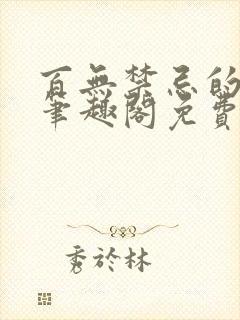 百無禁忌的
筆趣閣免費
秀於林